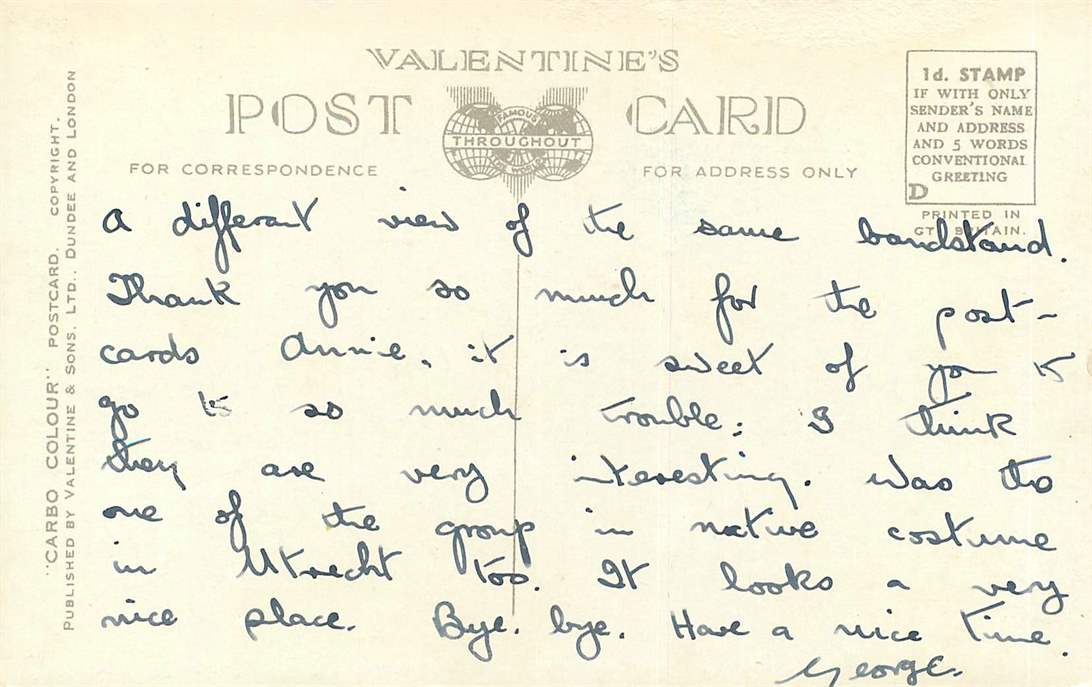 VALENTINE'S
POST CARD
FAMOUS
THROUGHOUT
THE WORLD
FOR CORRESPONDENCE
FOR ADDRESS ONLY
1d. STAMP
IF WITH ONLY
SENDER'S NAME
AND ADDRESS
AND 5 WORDS
CONVENTIONAL
GREETING
D
PRINTED IN
GT. BRITAIN.
"CARBO COLOUR" POSTCARD. COPYRIGHT.
PUBLISHED BY VALENTINE & SONS, LTD., DUNDEE AND LONDON
A different view of the same bandstand.
Thank you so much for the post-
cards Annie, it is sweet of you to
go to so much trouble; I think
they are very interesting. Was the
one of the group in native costume
in Utrecht too. It looks a very
nice place. Bye. bye. Have a nice time.
George.